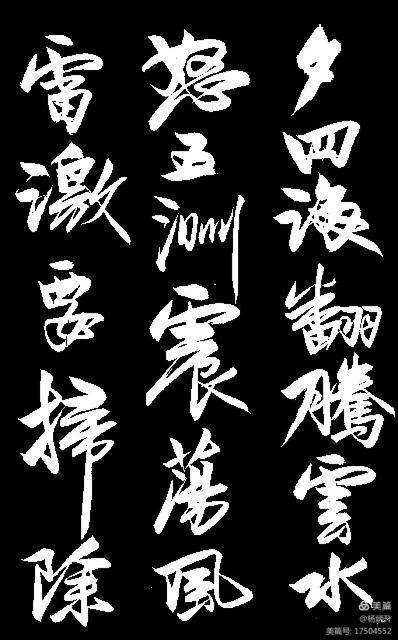 夕四海翻騰雲水
怒五洲震蕩風
雷激要掃除
美篇
美篇号: 17504552